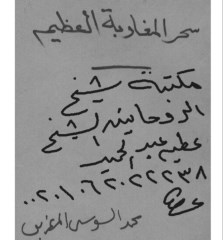 سحر المغاربة العظيم
مكتبة شيخ
الروحانين الشيخ
عطيه عبد الحميد
٠٠٢٠١٠٦٢٠٢٢٢٣٨
محمد السوسي المغربي